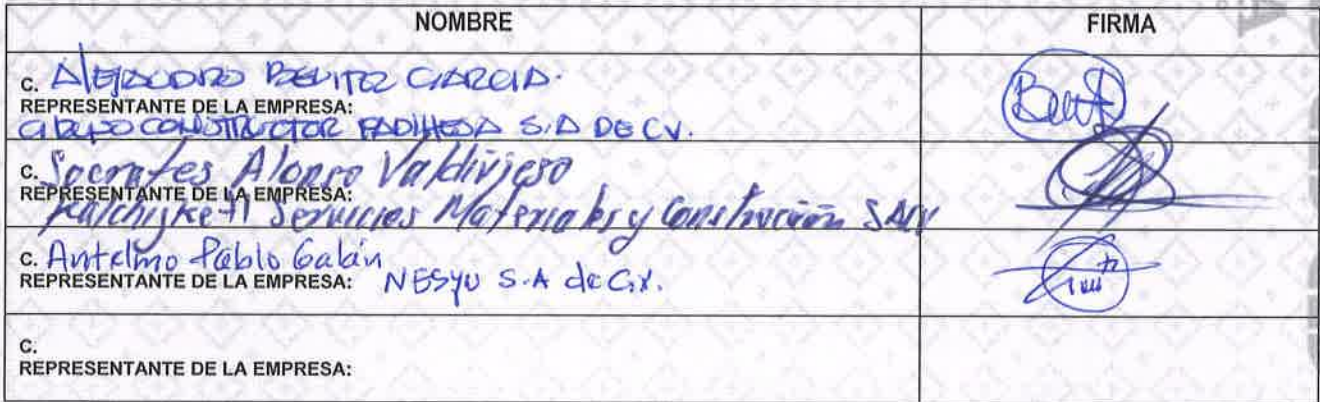 NOMBRE
FIRMA
C. Alejandro Benitez Garcia.
REPRESENTANTE DE LA EMPRESA:
GRUPO CONSTRUCTOR S.A DE CV.
C. Socrates Alonso Valdivieso
REPRESENTANTE DE LA EMPRESA:
Servicios Materiales y Construcción
C. Antelmo Pablo Galán
REPRESENTANTE DE LA EMPRESA: NESYU S.A de C.V.
C.
REPRESENTANTE DE LA EMPRESA: